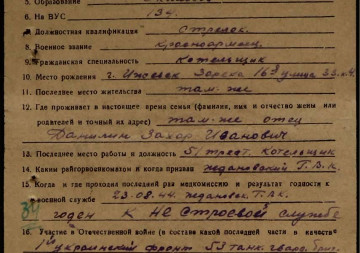 5. Образование
6. № ВУС 134.
7. Должностная квалификация стрелок.
8. Военное звание красноармеец.
9. Гражданская специальность Котельщик
10. Место рождения г. Ижевск Зарека 16 улица
11. Последнее место жительства там-же
12. Где проживает в настоящее время семья (фамилия, имя и отчество жены или
родителей и точный их адрес) там-же отец
Данилин Захор Иванович
13. Последнее место работы и должность 51 трест. Котельщик
14. Каким райгорвоенкоматом и когда призван Ждановский Г.В.К.
15. Когда и где проходил последний раз медкомиссию и результат годности к
военной службе 23.08.44. Ждановск.
годен к не строевой службе
16. Участие в Отечественной войне (в составе какой последней части в качестве
1й украинский фронт 53 танк. гвард. бриг.